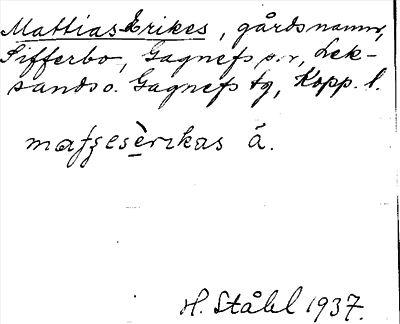 Mattias Erikes, gårdsnamn,
Sifferbo, Gagnefs s:n, Lek-
sands o. Gagnefs tg, Kopp. l.
matsesèrikas å.
H. Ståhl 1937.